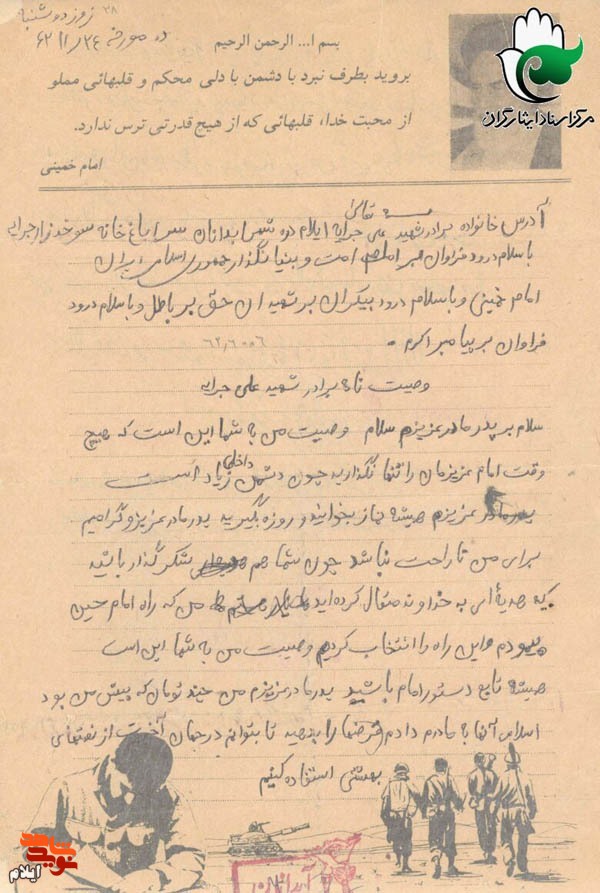 ۲۸ روز دوشنبه
در مورخه ۶۲/۱۱/۲۴
بسم ا... الرحمن الرحیم
بروید بطرف نبرد با دشمن با دلی محکم و قلبهائی مملو
از محبت خدا، قلبهائی که از هیچ قدرتی ترس ندارد.
امام خمینی
مرکز اسناد ایثارگران
تعالی
آدرس خانواده برادر شهید علی جرایه ایلام
با سلام درود فراوان بر امام امت و بنیانگذار جمهوری اسلامی ایران
امام خمینی و با سلام درود بیکران بر شهیدان حق بر باطل و با سلام درود
فراوان بر پیامبر اکرم.
وصیت نامه برادر شهید علی جرایه
سلام بر پدر مادر عزیزم سلام وصیت من به شما این است که هیچ
وقت امام عزیزمان را تنها نگذارید چون دشمن داخلی زیاد است
پدر مادر عزیزم همیشه نماز بخوانید و روزه بگیرید پدر مادر عزیز و گرامیم
برای من ناراحت نباشد چون شما هم شکر گذار باشید
که هدیه‌ای به خداوند متعال کرده‌اید من که راه امام حسین
این راه را انتخاب کردیم وصیت من به شما این است
همیشه تابع دستور امام باشید پدر مادر عزیزم من چند تومان که پیش من بود
اسلامی آنها با مادرم دادم قرضها را بدهید تا بتوانم در جهان آخرت از نعمتهای
بهشتی استفاده کنیم
نوید شاهد
ایلام